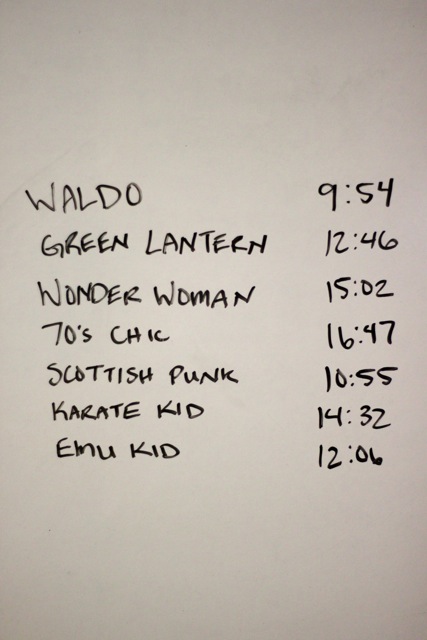 WALDO 9:54
GREEN LANTERN 12:46
WONDER WOMAN 15:02
70's CHIC 16:47
SCOTTISH PUNK 10:55
KARATE KID 14:32
EMU KID 12:06